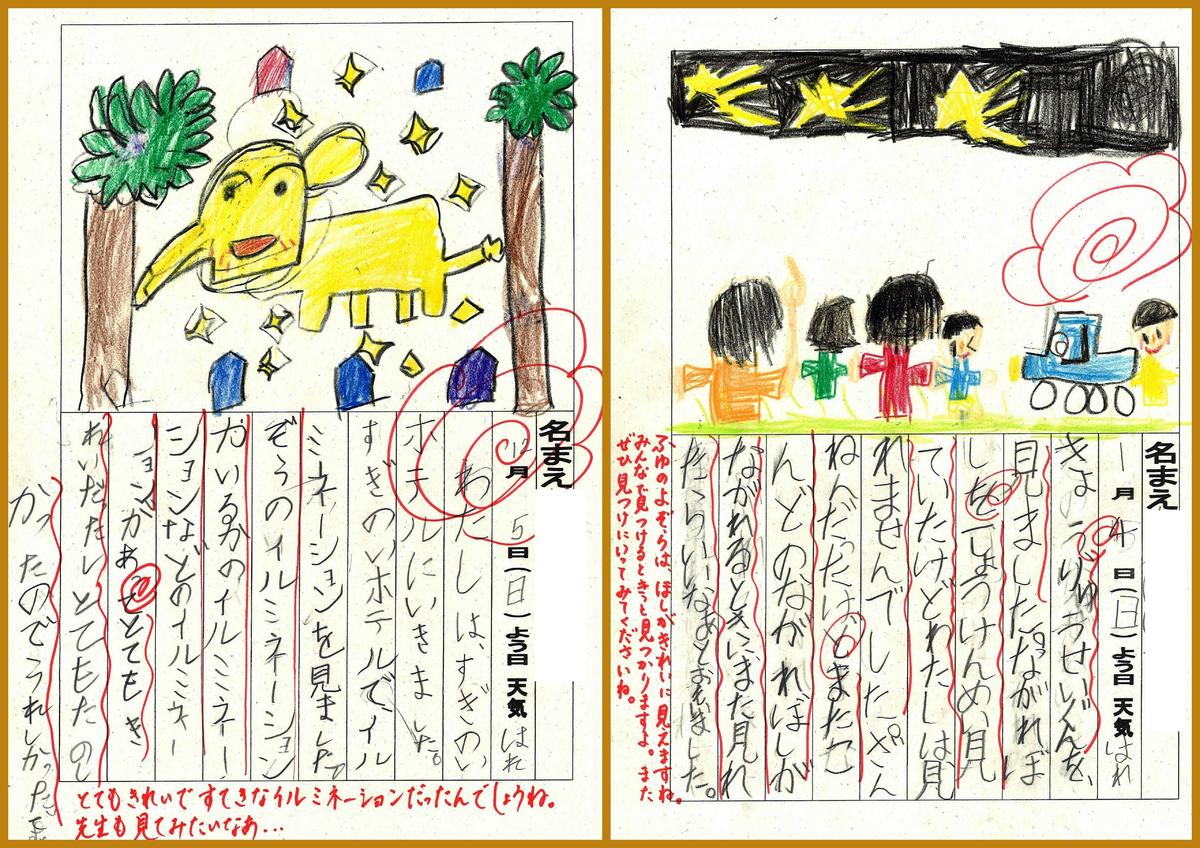 名まえ
12月 5日(日)よう日 天気 はれ
わたしは、すぎのい
ホテルにいきました。
すぎのいホテルで、イル
ミネーションを見ました。
ぞうのイルミネーション
やいるかのイルミネー
ションなどのイルミネー
ションがあってとてもき
れいだったしとてもたのし
かったのでうれしかったです
とてもきれいですてきなイルミネーションだったんでしょうね。
先生も見てみたいなあ...
名まえ
一月 4日(日)よう日 天気 はれ
きょうりゅうせいぐんを、
見ました。ながれぼ
しをいっしょうけんめい見
ていたけどわたしは見
れませんでした。ざん
ねんだったけどまたこ
んどのながれぼしが
ながれるときにまた見れ
たらいいなあとおもいました。
ふゆのよぞらは、ほしがきれいに見えますね。
みんなで見つけるときっと見つかりますよ。また
ぜひ見つけにいってみてくださいね。